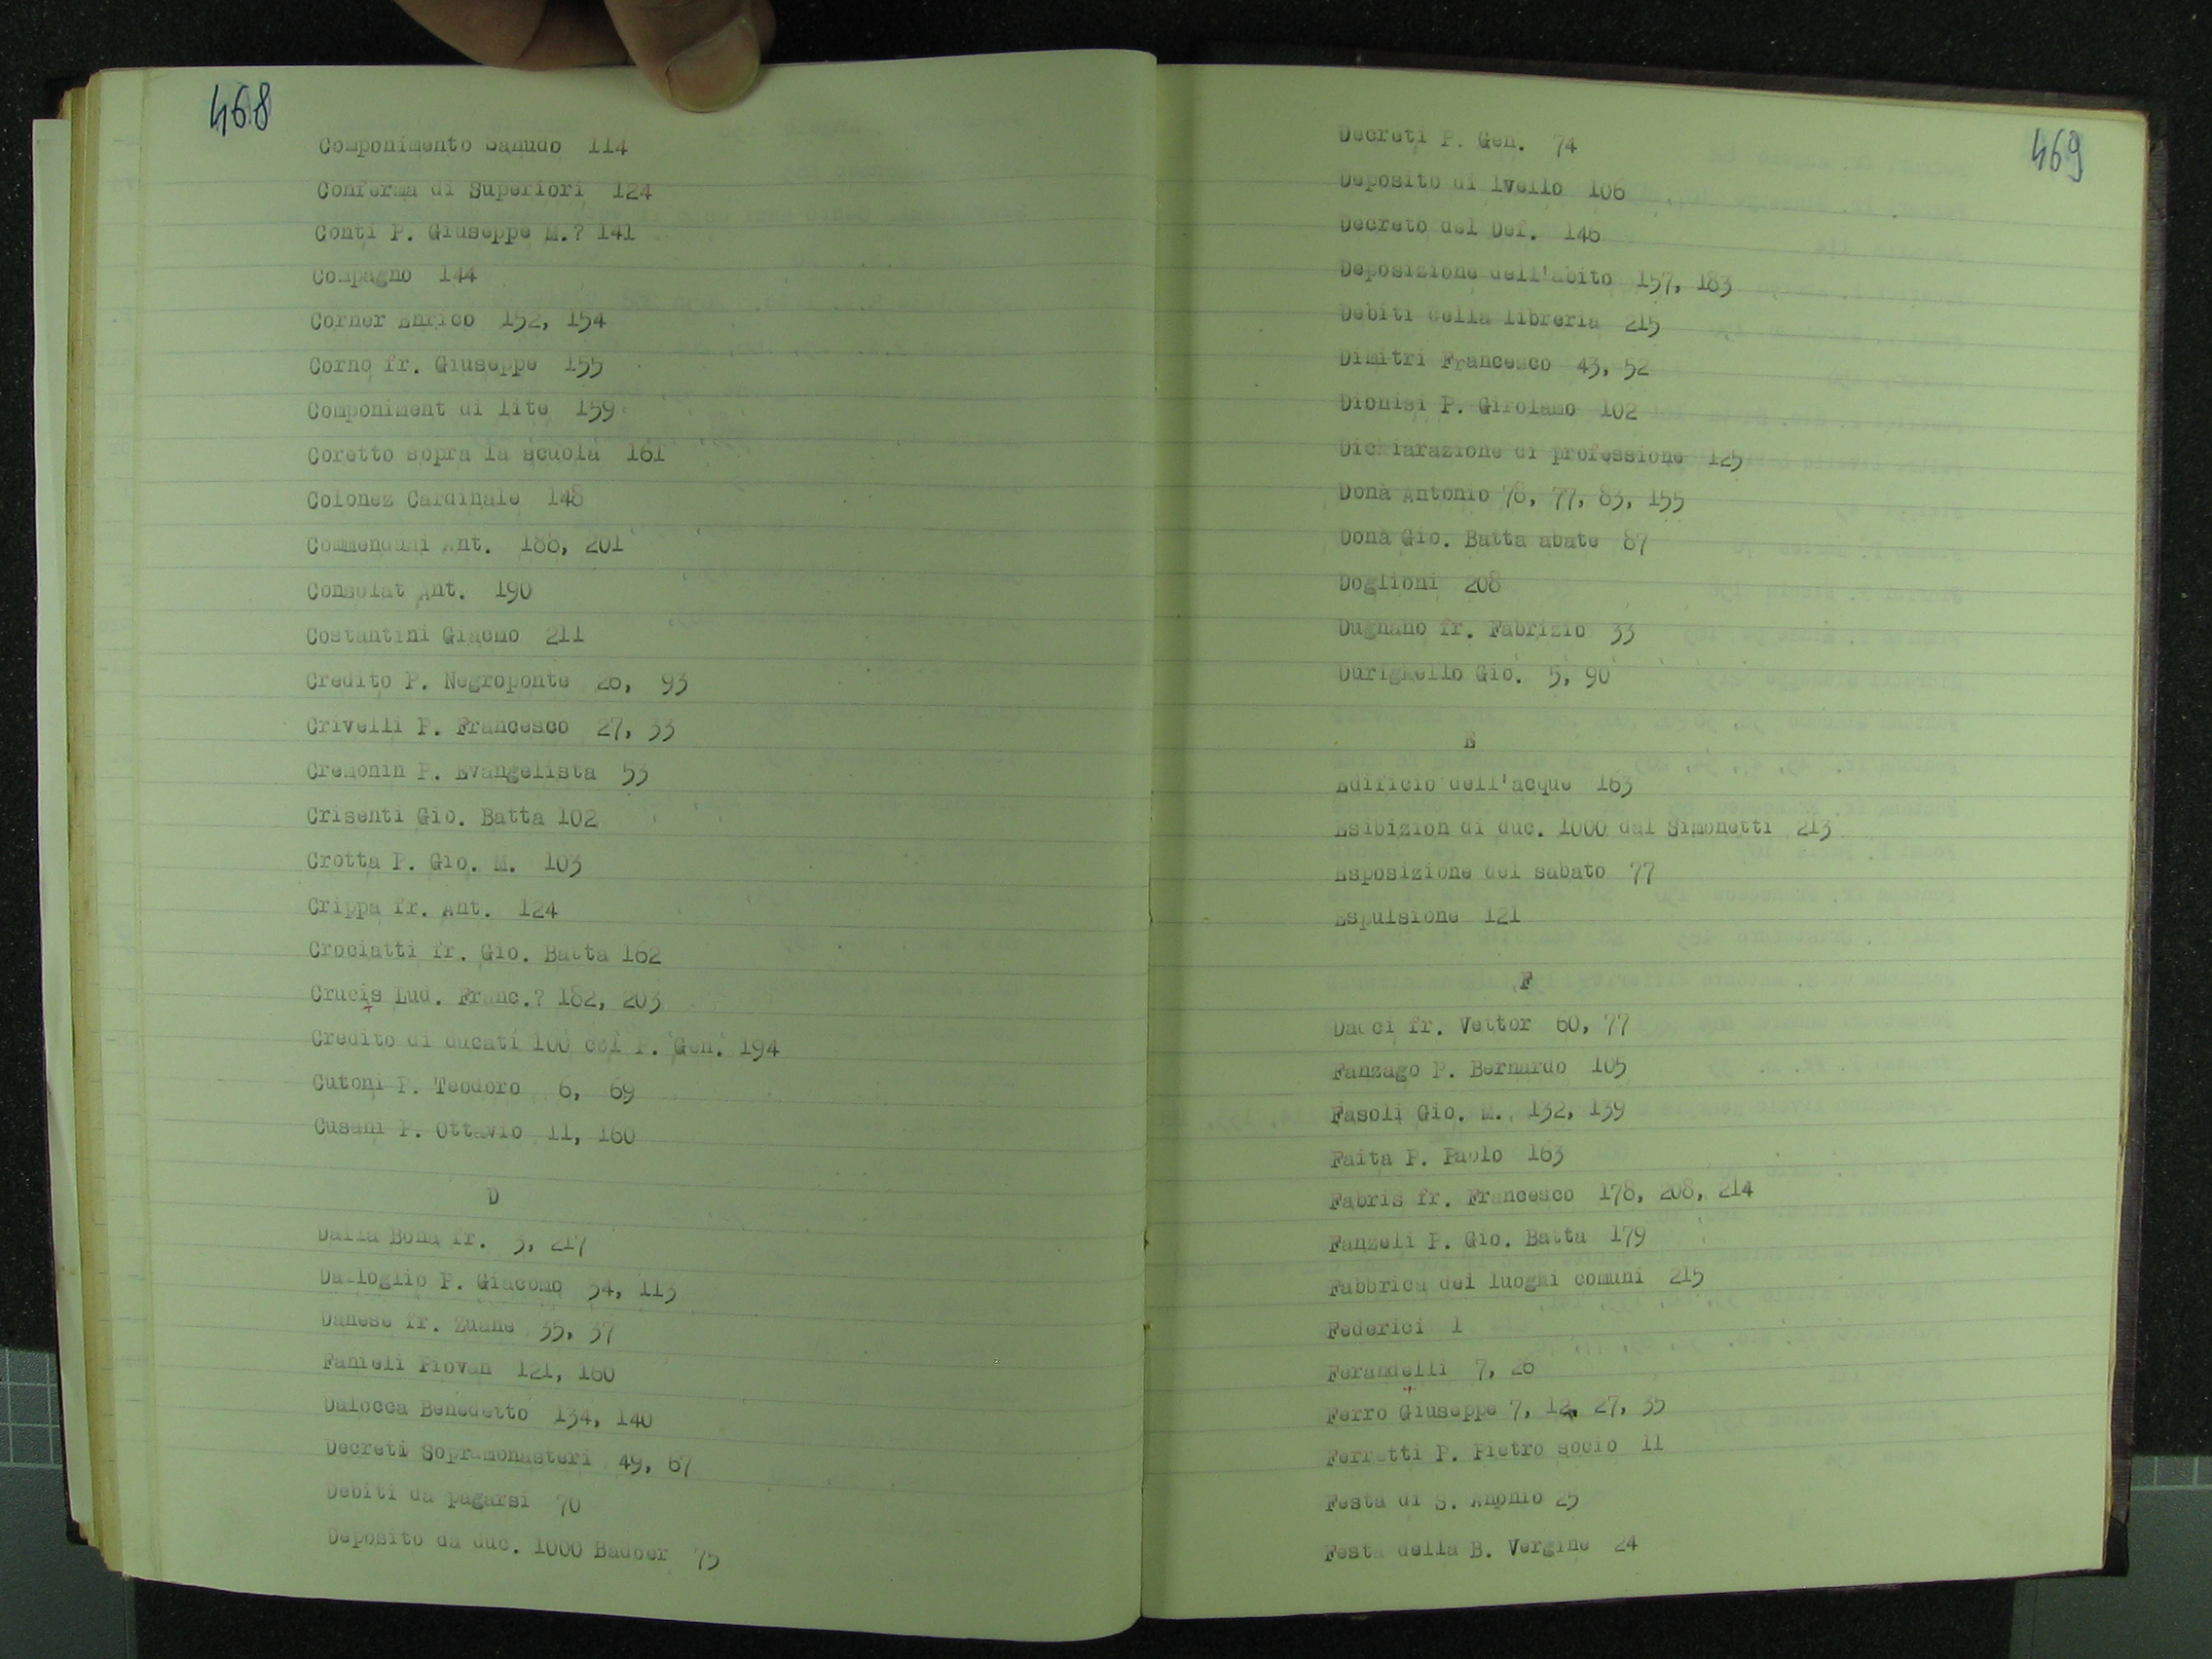 468
Componimento Sanudo 114
Conferma di Superiori 124
Conti P. Giuseppe M.? 141
Compagno 144
Corner Enrico 152, 154
Corno fr. Giuseppe 155
Componiment di lite 159
Coretto sopra la scuola 161
Colonez Cardinale 148
Commenduni Ant. 188, 201
Consolat Ant. 190
Costantini Giacmo 211
Credito P. Negroponte 26, 93
Crivelli P. Francesco 27, 33
Cremonin P. Evangelista 53
Crisenti Gio. Batta 102
Crotta P. Gio. M. 103
Crippa fr. Ant. 124
Crociatti fr. Gio. Batta 162
Crucis Lud. Franc.? 182, 203
Credito di ducati 100 col P. Gen. 194
Cutoni P. Teodoro 6, 69
Cusani P. Ottavio 11, 160
D
Dalla Bona fr. 3, 217
Dalloglio P. Giacomo 34, 113
Danese fr. Zuane 35, 37
Fanieli Piovan 121, 160
Dalocca Benedetto 134, 140
Decreti Sopramonasteri 49, 67
Debiti da pagarsi 70
Deposito da duc. 1000 Badoer 75
469
Decreti P. Gen. 74
Deposito di lvello 106
Decreto del Def. 146
Deposizione dell'abito 157, 183
Debiti della libreria 215
Dimitri Francesco 43, 52
Dionisi P. Girolamo 102
Dichiarazione di professione 125
Donà Antonio 78, 77, 83, 155
Donà Gio. Batta abate 87
Doglioni 208
Dugnano fr. Fabrizio 33
Durighello Gio. 5, 90
E
Edificio dell'acque 163
Esibizion di duc. 1000 dal Simonetti 213
Esposizione del sabato 77
Espulsione 121
F
Dacci fr. Vettor 60, 77
Fanzago P. Bernardo 105
Fasoli Gio. M. 132, 139
Faita P. Paolo 163
Fabris fr. Francesco 178, 208, 214
Fanzeli P. Gio. Batta 179
Fabbrica dei luoghi comuni 215
Federici 1
Ferandelli 7, 26
Ferro Giuseppe 7, 12, 27, 35
Ferretti P. Pietro socio 11
Festa di S. Anonio 25
Festa della B. Vergine 24